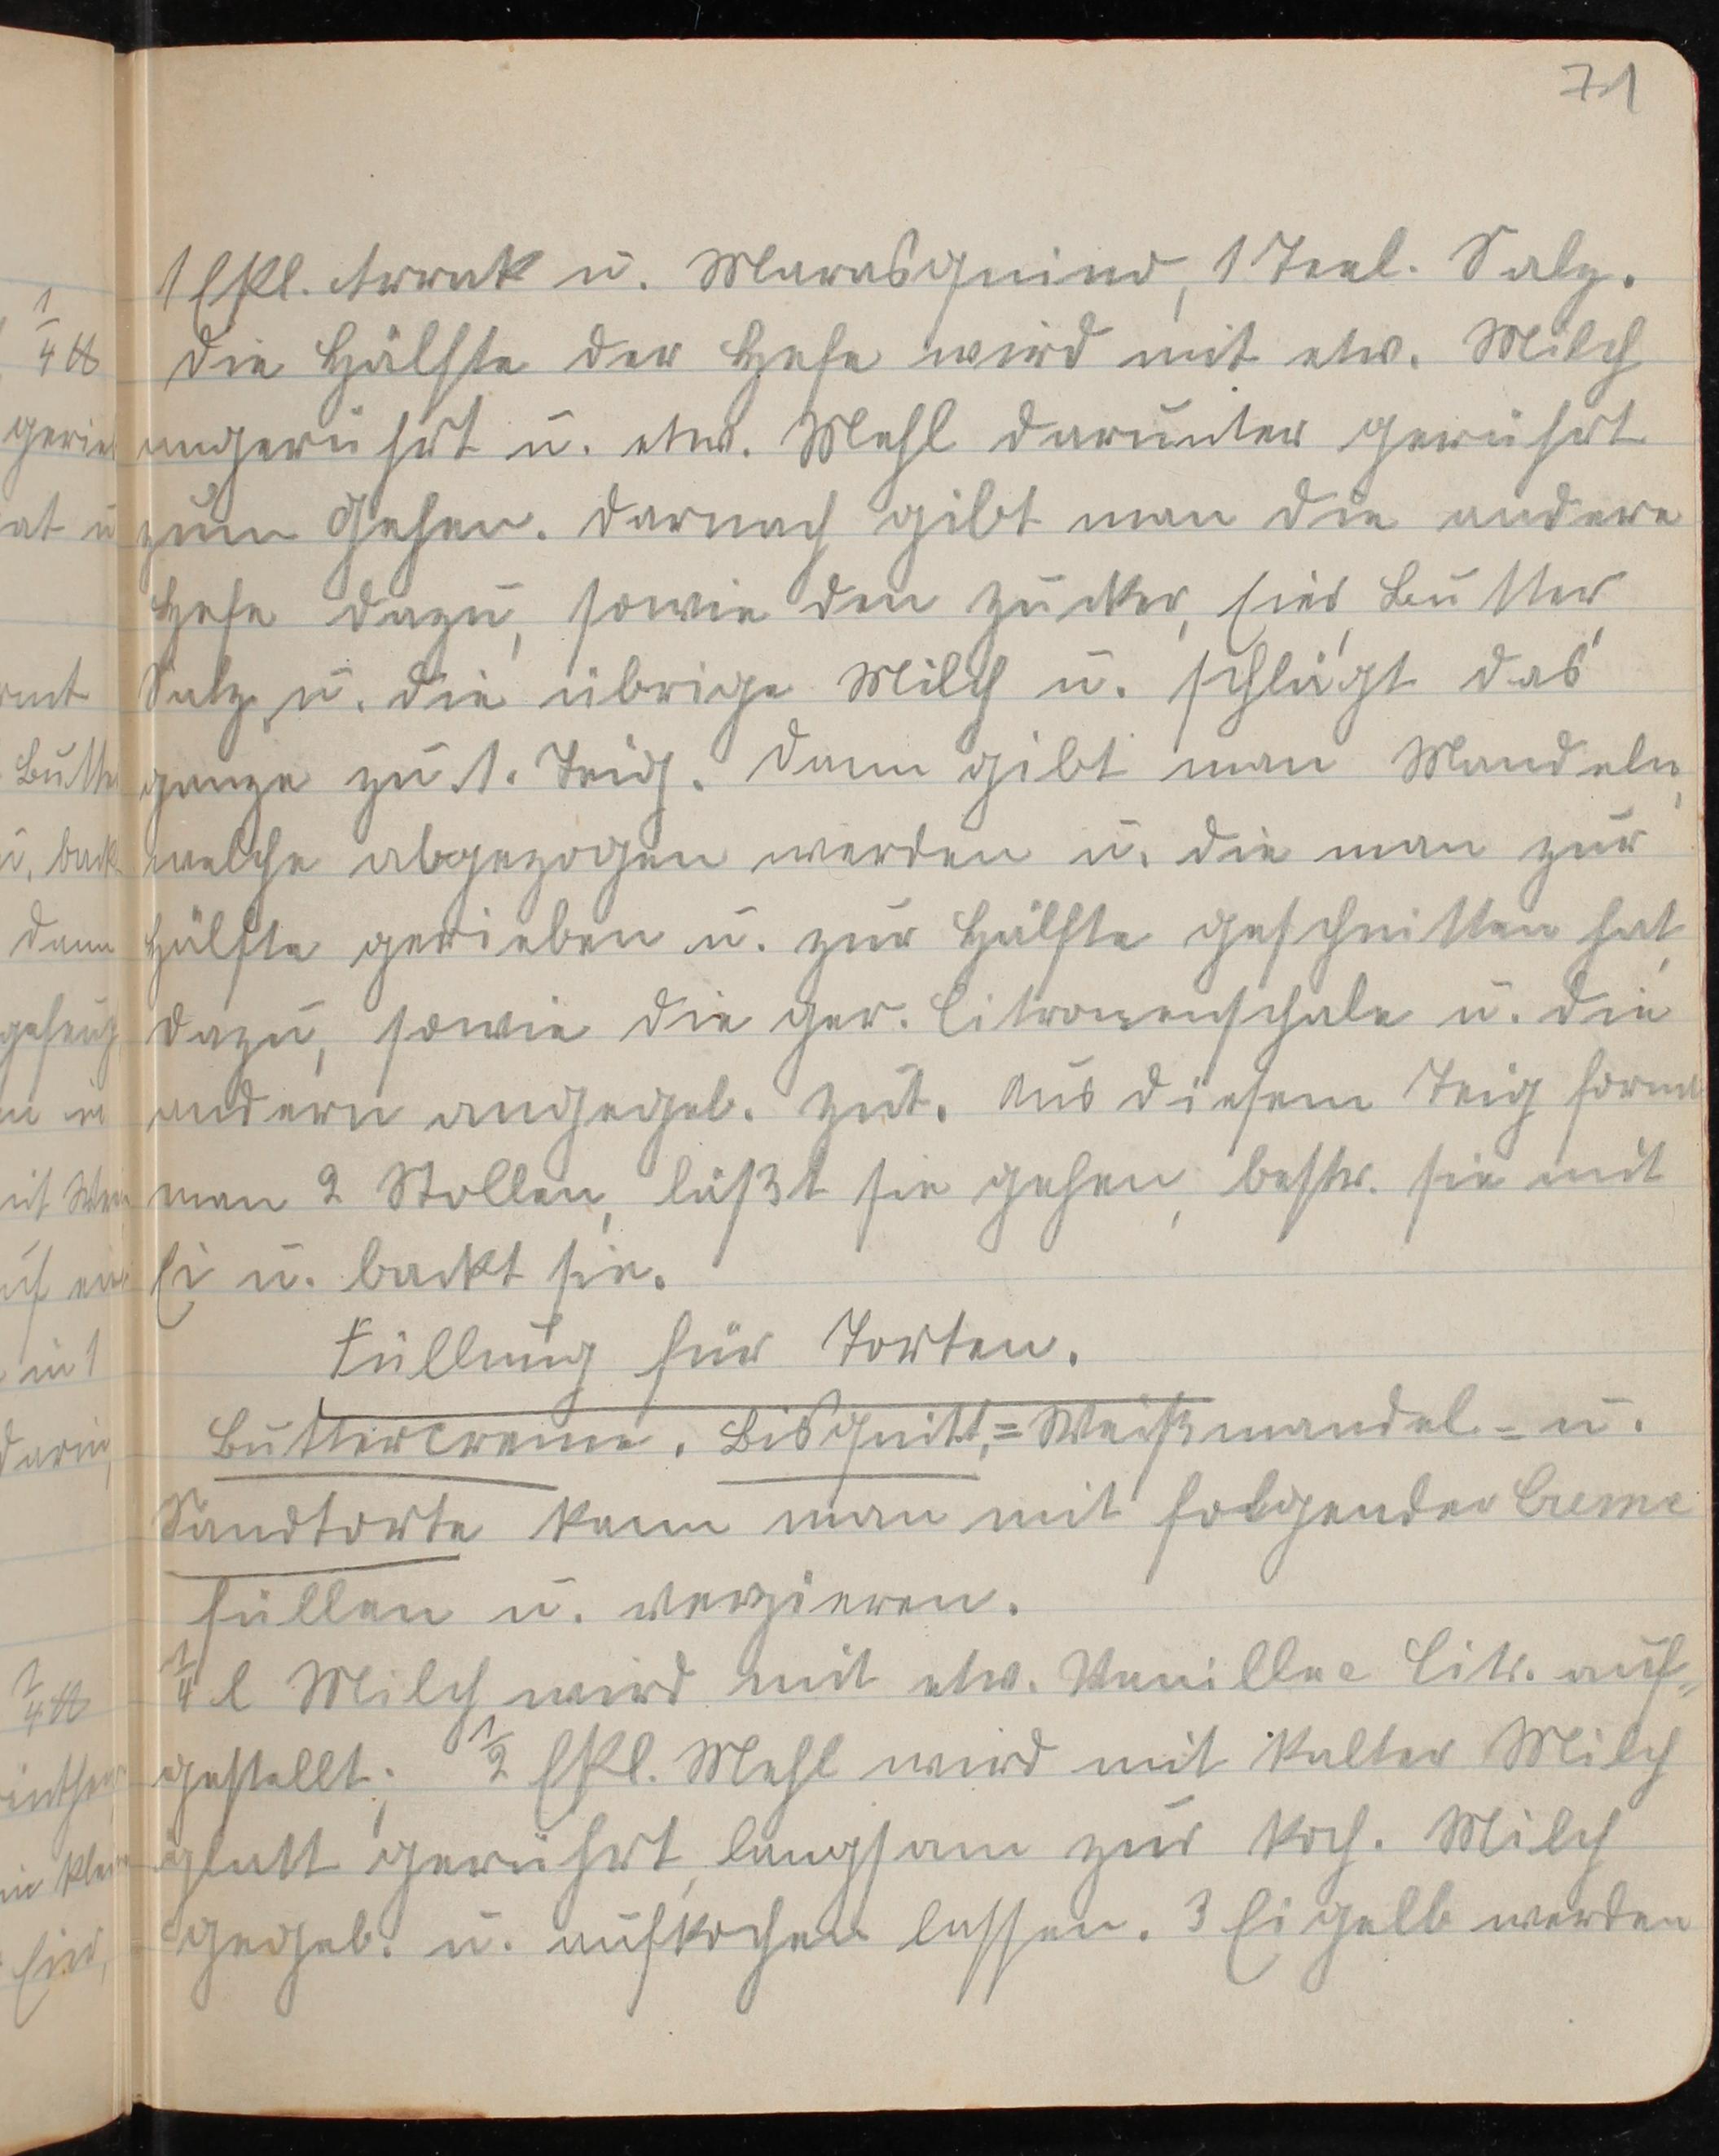 71
1 Eßl. Arrak u. Marasquino, 1 Teel. Salz.
Die Hälfte der Hefe wird mit etw. Milch
angerührt u. etw. Mehl darunter gerührt
zum Gehen. Darnach gibt man die andere
Hefe dazu, sowie den Zucker, Eier, Butter,
Salz u. die übrige Milch u. schlägt das
ganze zu 1. Teig. Dann gibt man Mandeln,
welche abgezogen werden u. die man zur
Hälfte gerieben u. zur Hälfte geschnitten hat,
dazu, sowie die ger. Citronenschale u. die
andern angegeb. Zut. Aus diesem Teig formt
man 2 Stollen, läßt sie gehen, bestr. sie mit
Ei u. backt sie.
Füllung für Torten.
Buttercreme. Bisquitt,= Weißmandel= u.
Sandtorte kann man mit folgender Creme
füllen u. verzieren.
1/4 l Milch wird mit etw. Vanille Citr. auf=
gestellt; 1/2 Eßl. Mehl wird mit kalter Milch
glatt gerührt, langsam zur koch. Milch
gegeb. u. aufkochen lassen. 3 Eigelb werden